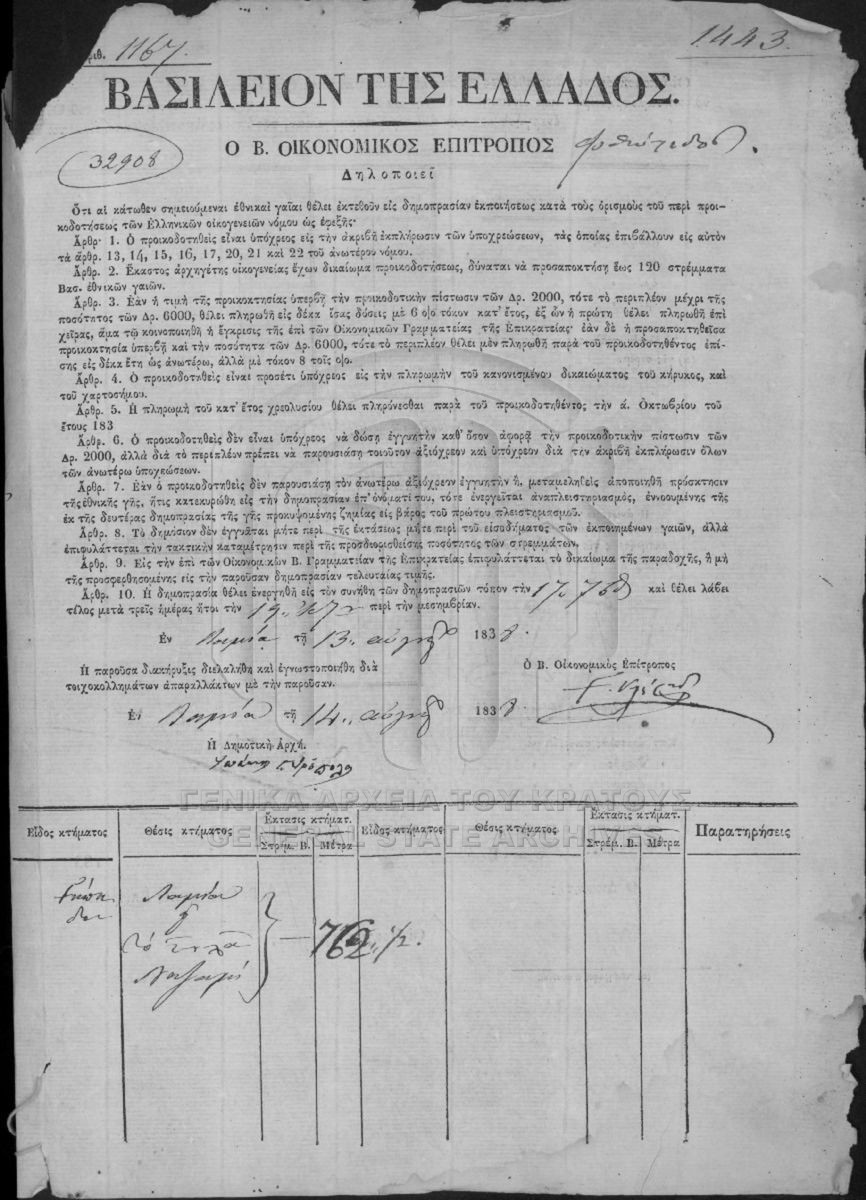 ριθ. 1167.
1443.
ΒΑΣΙΛΕΙΟΝ ΤΗΣ ΕΛΛΑΔΟΣ.
32908
Ο Β. ΟΙΚΟΝΟΜΙΚΟΣ ΕΠΙΤΡΟΠΟΣ Φθιώτιδος.
Δηλοποιεῖ
Ὅτι αἱ κάτωθεν σημειούμεναι ἐθνικαὶ γαῖαι θέλει ἐκτεθοῦν εἰς δημοπρασίαν ἐκποιήσεως κατὰ τοὺς ὁρισμοὺς τοῦ περὶ προι-
κοδοτήσεως τῶν Ἑλληνικῶν οἰκογενειῶν νόμου ὡς ἐφεξῆς·
Ἄρθρ· 1. Ὁ προικοδοτηθεὶς εἶναι ὑπόχρεος εἰς τὴν ἀκριβῆ ἐκπλήρωσιν τῶν ὑποχρεώσεων, τὰς ὁποίας ἐπιβάλλουν εἰς αὐτὸν
τὰ ἄρθρ. 13, 14, 15, 16, 17, 20, 21 καὶ 22 τοῦ ἀνωτέρου νόμου.
Ἄρθρ. 2. Ἕκαστος ἀρχηγέτης οἰκογενείας ἔχων δικαίωμα προικοδοτήσεως, δύναται νὰ προσαποκτήσῃ ἕως 120 στρέμματα
Βασ. ἐθνικῶν γαιῶν.
Ἄρθρ. 3. Ἐὰν ἡ τιμὴ τῆς προικοκτησίας ὑπερβῇ τὴν προικοδοτικὴν πίστωσιν τῶν Δρ. 2000, τότε τὸ περιπλέον μέχρι τῆς
ποσότητος τῶν Δρ. 6000, θέλει πληρωθῆ εἰς δέκα ἴσας δόσεις μὲ 6 ο)ο τόκον κατ' ἔτος, ἐξ ὧν ἡ πρώτη θέλει πληρωθῆ ἐπὶ
χεῖρας, ἅμα τῷ κοινοποιηθῇ ἡ ἔγκρισις τῆς ἐπὶ τῶν Οἰκονομικῶν Γραμματείας τῆς Ἐπικρατείας· ἐὰν δὲ ἡ προσαποκτηθεῖσα
προικοκτησία ὑπερβῇ καὶ τὴν ποσότητα τῶν Δρ. 6000, τότε τὸ περιπλέον θέλει μὲν πληρωθῆ παρὰ τοῦ προικοδοτηθέντος ἐπί-
σης εἰς δέκα ἔτη ὡς ἀνωτέρω, ἀλλὰ μὲ τόκον 8 τοῖς ο)ο.
Ἄρθρ. 4. Ὁ προικοδοτηθεὶς εἶναι προσέτι ὑπόχρεος εἰς τὴν πληρωμὴν τοῦ κανονισμένου δικαιώματος τοῦ κήρυκος, καὶ
τοῦ χαρτοσήμου.
Ἄρθρ. 5. Ἡ πληρωμὴ τοῦ κατ' ἔτος χρεολυσίου θέλει πληρόνεσθαι παρὰ τοῦ προικοδοτηθέντος τὴν ά. Ὀκτωβρίου τοῦ
ἔτους 183
Ἄρθρ. 6. Ὁ προικοδοτηθεὶς δὲν εἶναι ὑπόχρεος νὰ δώσῃ ἐγγυητὴν καθ' ὅσον ἀφορᾷ τὴν προικοδοτικὴν πίστωσιν τῶν
Δρ. 2000, ἀλλὰ διὰ τὸ περιπλέον πρέπει νὰ παρουσιάσῃ τοιοῦτον ἀξιόχρεον καὶ ὑπόχρεον διὰ τὴν ἀκριβῆ ἐκπλήρωσιν ὅλων
τῶν ἀνωτέρω ὑποχεώσεων.
Ἄρθρ. 7. Ἐὰν ὁ προικοδοτηθεὶς δὲν παρουσιάσῃ τὸν ἀνωτέρω ἀξιόχρεον ἐγγυητὴν ἢ, μεταμεληθεὶς ἀποποιηθῇ πρόσκτησιν
τῆς ἐθνικῆς γῆς, ἥτις κατεκυρώθη εἰς τὴν δημοπρασίαν ἐπ' ὀνόματί του, τότε ἐνεργεῖται ἀναπλειστηριασμὸς, ἐννοουμένης τῆς
ἐκ τῆς δευτέρας δημοπρασίας τῆς γῆς προκυψομένης ζημίας εἰς βάρος τοῦ πρώτου πλειστηριασμοῦ.
Ἄρθρ. 8. Τὸ δημόσιον δὲν ἐγγυᾶται μήτε περὶ τῆς ἐκτάσεως μήτε περὶ τοῦ εἰσοδήματος τῶν ἐκποιημένων γαιῶν, ἀλλὰ
ἐπιφυλάττεται τὴν τακτικὴν καταμέτρησιν περὶ τῆς προσδιορισθείσης ποσότητος τῶν στρεμμάτων.
Ἄρθρ. 9. Εἰς τὴν ἐπὶ τῶν Οἰκονομικῶν Β. Γραμματείαν τῆς Ἐπικρατείας ἐπιφυλάττεται τὸ δικαίωμα τῆς παραδοχῆς, ἢ μὴ
τῆς προσφερθησομένης εἰς τὴν παροῦσαν δημοπρασίαν τελευταίας τιμῆς.
Ἄρθρ. 10. Ἡ δημοπρασία θέλει ἐνεργηθῆ εἰς τὸν συνήθη τῶν δημοπρασιῶν τόπον τὴν 17. 7βρ καὶ θέλει λάβει
τέλος μετὰ τρεῖς ἡμέρας ἤτοι τὴν 19. περὶ τὴν μεσημβρίαν.
Ἐν Λαμία τῇ 13. αὐγούς 1838.
Ἡ παροῦσα διακήρυξις διελαλήθη καὶ ἐγνωστοποιήθη διὰ
τοιχοκολλημάτων ἀπαραλλάκτων μὲ τὴν παροῦσαν.
Ὁ Β. Οἰκονομικὸς Ἐπίτροπος
Ἐν Λαμία τῇ 14. αὐγούς 1838.
Ἡ Δημοτικὴ Ἀρχή.
ΓΕΝΙΚΑ ΑΡΧΕΙΑ ΤΟΥ ΚΡΑΤΟΥΣ
GENERAL STATE ARCHIVES
Εἶδος κτήματος Θέσις κτήματος Ἔκτασις κτήματ. Εἶδος κτήματος Θέσις κτήματος Ἔκτασις κτήματ. Παρατηρήσεις
Στρέμ. Β. Μέτρα Στρέμ. Β. Μέτρα
Γήπε Λαμία
δον
— 762 1/2.